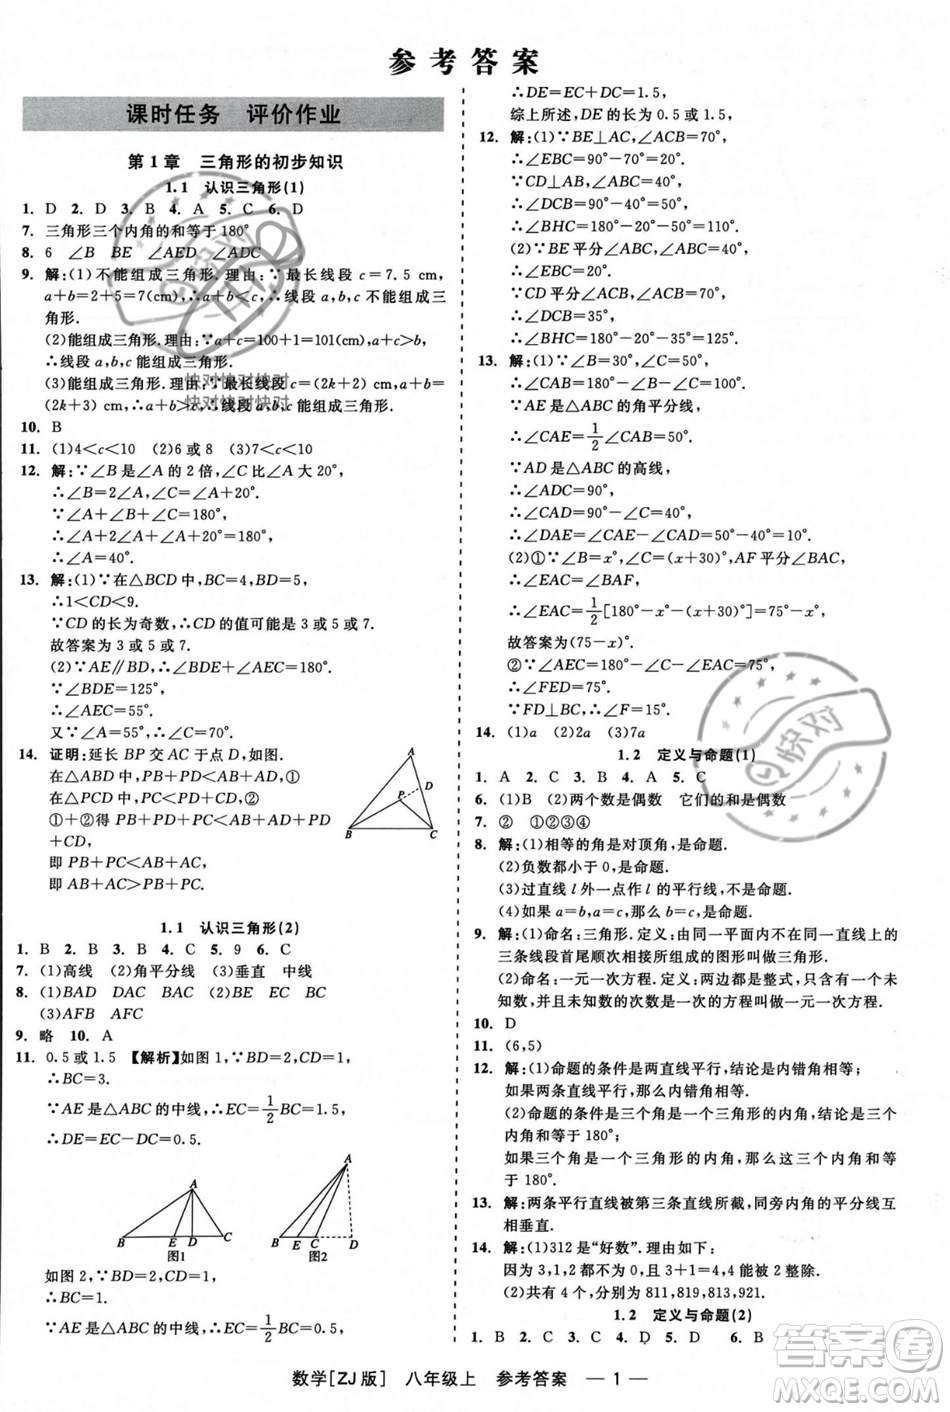 参考答案
课时任务 评价作业
第1章 三角形的初步知识
1.1 认识三角形(1)
1. D 2. D 3. B 4. A 5. C 6. D
7. 三角形三个内角的和等于180°
8. 6 ∠B BE ∠AED ∠ADC
9. 解:(1)不能组成三角形.理由:∵最长线段c=7.5 cm,
a+b=2+5=7(cm),∴a+b<c,∴线段a,b,c不能组成三
角形.
(2)能组成三角形.理由:∵a+c=100+1=101(cm)>b,
∴线段a,b,c能组成三角形.
(3)能组成三角形.理由:∵最长线段c,a+b=(2k+4)cm>
(2k+3) cm,∴a+b>c,∴线段a,b,c能组成三角形.
10. B
11. (1)4<c<10 (2)6或8 (3)7<c<10
12. 解:∵∠B是∠A的2倍,∠C比∠A大20°,
∴∠B=2∠A,∠C=∠A+20°.
∵∠A+∠B+∠C=180°,
∴∠A+2∠A+∠A+20°=180°,
∴∠A=40°.
13. 解:(1)∵在△BCD中,BC=4,BD=5,
∴1<CD<9.
∵CD的长为奇数,∴CD的值可能是3或5或7.
故答案为3或5或7.
(2)∵AE∥BD,∴∠AEC+∠BDE=180°.
∵∠BDE=125°,
∴∠AEC=55°.
又∵∠A=55°,∴∠C=70°.
14. 证明:延长BP交AC于点D,如图.
在△ABD中,PB+PD<AB+AD,①
在△PCD中,PC<PD+CD,②
①+②得PB+PD+PC<AB+AD+PD
+CD,
即PB+PC<AB+AC,
即AB+AC>PB+PC.
A
D
P
B
C
1.1 认识三角形(2)
1. B 2. B 3. B 4. C 5. 9 6. C
7. (1)高线 (2)角平分线 (3)垂直 中线
8. (1)BAD DAC BAC (2)BE CE BC
(3)AFB AFC
9. 略 10. A
11. 0.5或1.5 【解析】如图1,∵BD=2,CD=1,
∴BC=3.
∵AE是△ABC的中线,∴EC=1/2BC=1.5,
∴DE=EC-DC=0.5.
A
B E D C
图1
A
B E C D
图2
如图2,∵BD=2,CD=1,
∴BC=1.
∵AE是△ABC的中线,∴EC=1/2BC=0.5,
∴DE=EC+DC=1.5,
综上所述,DE的长为0.5或1.5.
12. 解:(1)∵BE⊥AC,∠ACB=70°,
∴∠EBC=90°-70°=20°.
∵CD⊥AB,∠ABC=40°,
∴∠DCB=90°-40°=50°,
∴∠BHC=180°-20°-50°=110°.
(2)∵BE平分∠ABC,∠ABC=40°,
∴∠EBC=20°.
∵CD平分∠ACB,∠ACB=70°,
∴∠DCB=35°,
∴∠BHC=180°-20°-35°=125°.
13. 解:(1)∵∠B=30°,∠C=60°,
∴∠CAB=180°-∠B-∠C=90°.
∵AE是△ABC的角平分线,
∴∠CAE=1/2∠CAB=45°.
∵AD是△ABC的高线,
∴∠ADC=90°,∴∠CAD=30°,
∴∠DAE=∠CAE-∠CAD=15°.
(2)①∵∠B=x°,∠C=(x+30)°,AF平分∠BAC,
∴∠EAC=∠BAF,
∴∠EAC=1/2[180°-x°-(x+30)°]=(75-x)°.
故答案为(75-x)°.
②∵∠AEC=180°-∠EAC-∠C=75°,
∴∠FED=∠AEC=75°.
∵FD⊥BC,∴∠F=15°.
14. (1)a (2)2a (3)7a
1.2 定义与命题(1)
1. A 2. C 3. B 4. A 5. C
6. (1)B (2)两个数是偶数 它们的和是偶数
7. ② ①③④
8. 解:(1)相等的角是对顶角,是命题.
(2)负数都小于0,是命题.
(3)过直线l外一点作l的平行线,不是命题.
(4)如果a=b,a=c,那么b=c,是命题.
9. 解:(1)命名:三角形.定义:由同一平面内不在同一直线上的
三条线段首尾顺次相接所组成的图形叫做三角形.
(2)命名:一元一次方程.定义:两边都是整式,只含有一个未
知数,并且未知数的次数是一次的方程叫做一元一次方程.
10. D
11. (6,5)
12. 解:(1)命题的条件是两直线平行,结论是内错角相等;
如果两条直线平行,那么内错角相等.
(2)命题的条件是三个角是一个三角形的内角,结论是这三个
角的和等于180°;
如果三个角是一个三角形的内角,那么这三个角的和等于
180°.
13. 解:两条平行直线被第三条直线所截,同旁内角的平分线互
相垂直.
14. 解:(1)312是“好数”.理由如下:
因为3,1,2都不为0,且3+1=4,4能被2整除.
(2)共有4个,分别是811,819,813,921.
1.2 定义与命题(2)
1. B 2. C 3. B 4. D 5. D 6. B
数学[ZJ版] 八年级上 参考答案 — 1 —
快对快对快对
快对快对快对
快对
答案圈
MXQE.COM